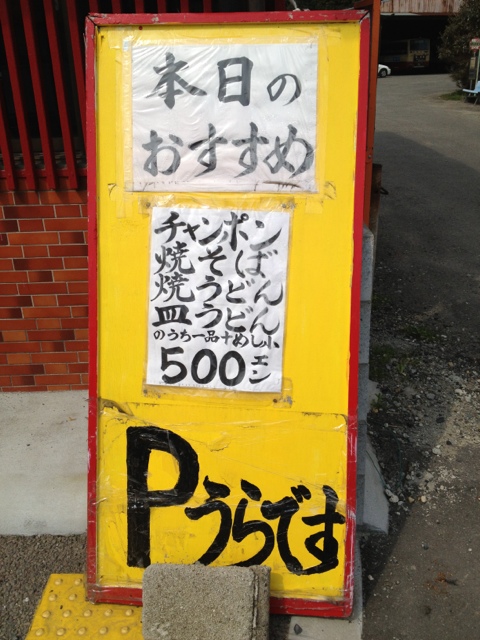 本日の
おすすめ
チャンポン
焼そばん
焼うどん
皿うどん
のうち一品+めし小
500エン
Pうらです